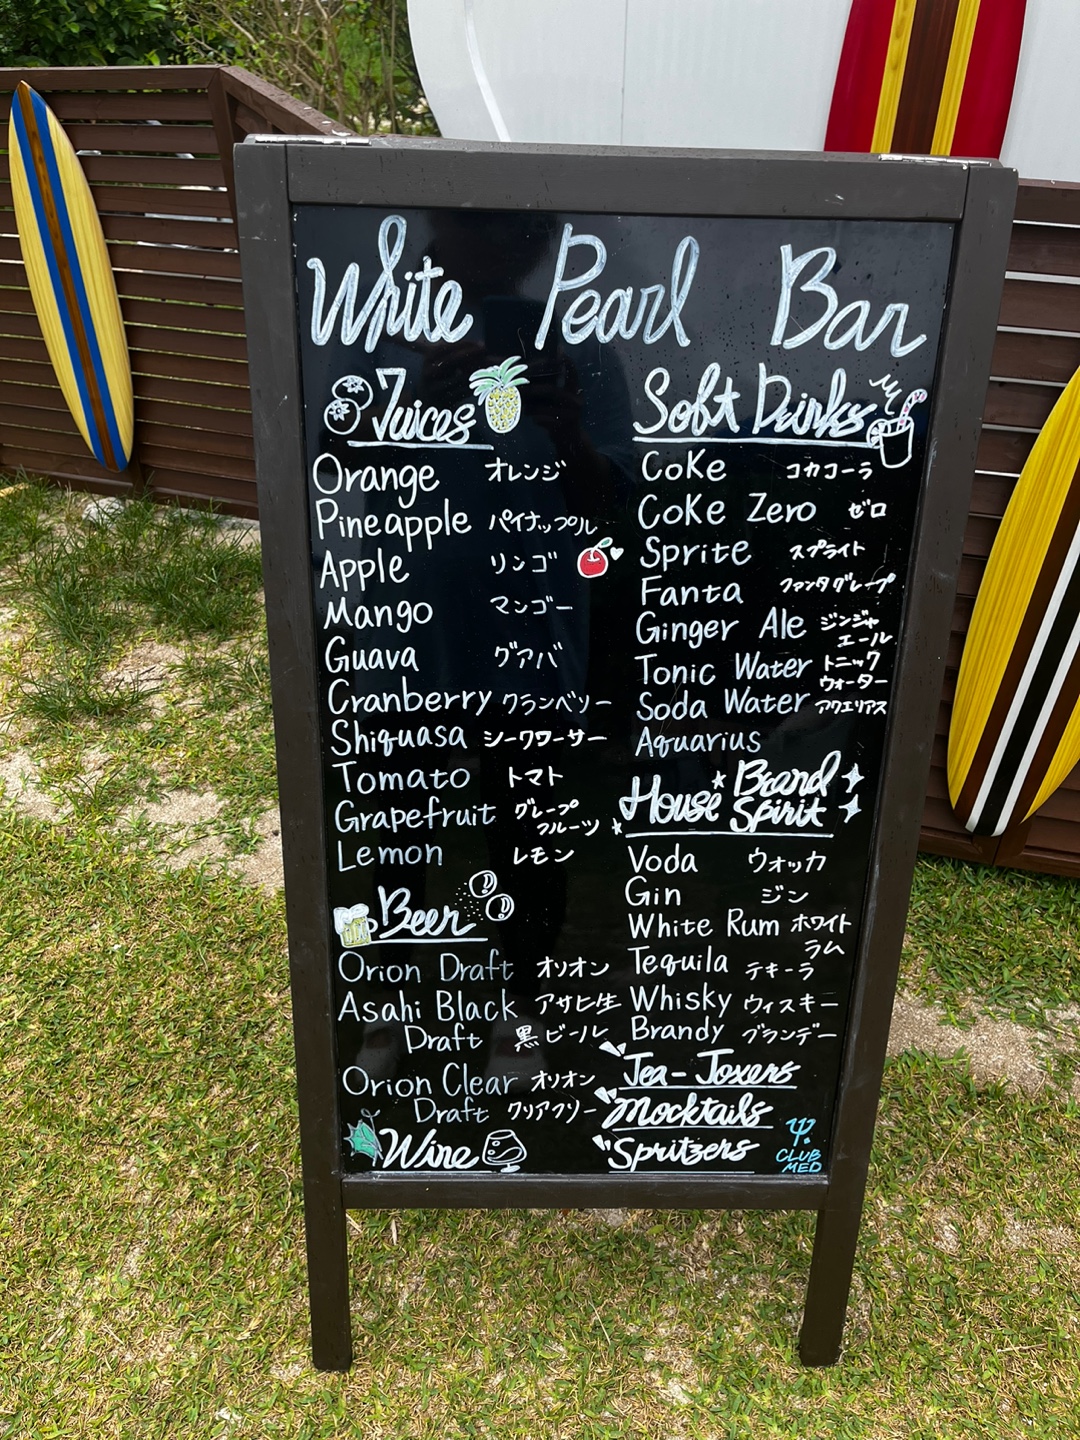 White Pearl Bar
Juices
Orange オレンジ
Pineapple パイナップル
Apple リンゴ
Mango マンゴー
Guava グアバ
Cranberry クランベリー
Shiquasa シークワーサー
Tomato トマト
Grapefruit グレープ
フルーツ
Lemon レモン
Beer
Orion Draft オリオン
Asahi Black アサヒ生
Draft 黒ビール
Orion Clear オリオン
Draft クリアフリー
Wine
Soft Drinks
Coke コカコーラ
Coke Zero ゼロ
Sprite スプライト
Fanta ファンタグレープ
Ginger Ale ジンジャ
エール
Tonic Water トニック
ウォーター
Soda Water アクエリアス
Aquarius
House Brand
Spirit
Voda ウォッカ
Gin ジン
White Rum ホワイト
ラム
Tequila テキーラ
Whisky ウィスキー
Brandy ブランデー
Tea-Toxers
Mocktails
Spritzers
CLUB
MED